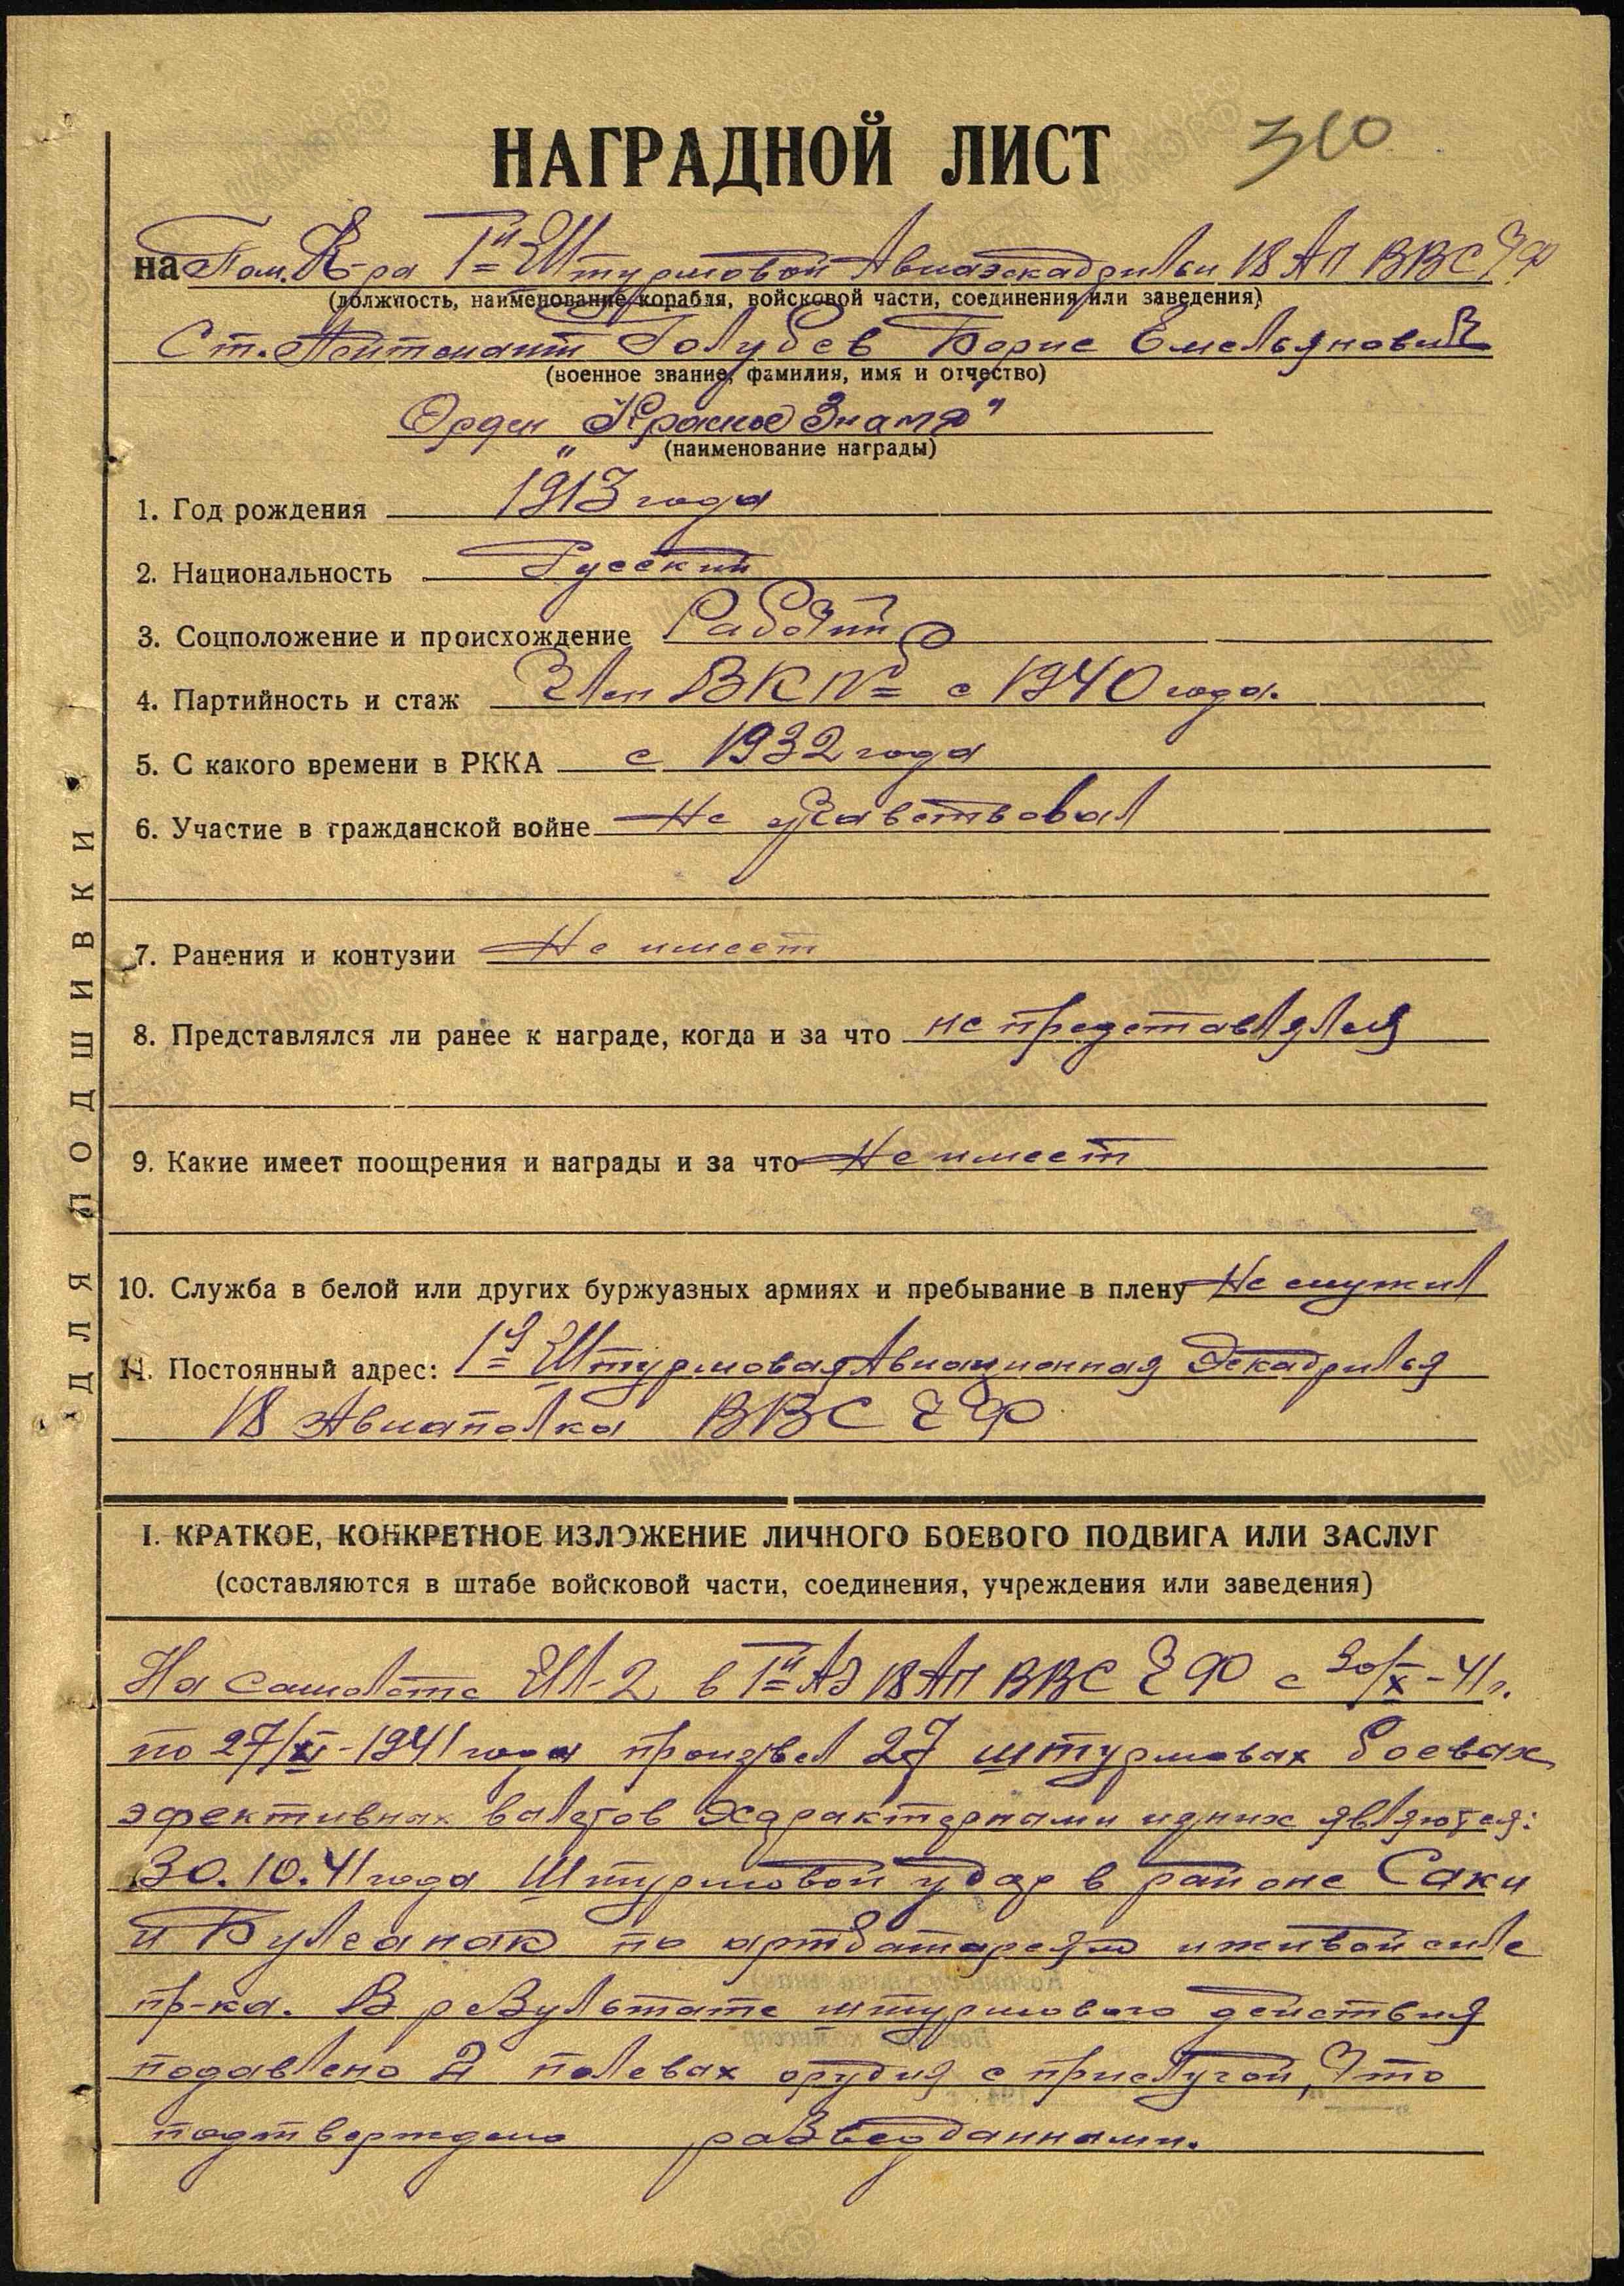 НАГРАДНОЙ ЛИСТ 310
на Пом. К-ра 1й Штурмовой Авиаэскадрильи 18 АП ВВС ЧФ
(должность, наименование корабля, войсковой части, соединения или заведения)
Ст. Лейтенант Голубев Борис Емельянович
(военное звание, фамилия, имя и отчество)
Орден "Красное Знамя"
(наименование награды)
1. Год рождения 1913 года
2. Национальность Русский
3. Соцположение и происхождение Рабочий
4. Партийность и стаж Член ВКПб с 1940 года.
5. С какого времени в РККА с 1932 года
6. Участие в гражданской войне Не учавствовал
7. Ранения и контузии Не имеет
8. Представлялся ли ранее к награде, когда и за что не представлялся
9. Какие имеет поощрения и награды и за что Не имеет
10. Служба в белой или других буржуазных армиях и пребывание в плену Не служил
11. Постоянный адрес: 1я Штурмовая Авиационная Эскадрилья
18 Авиаполка ВВС ЧФ
ДЛЯ ПОДШИВКИ
I. КРАТКОЕ, КОНКРЕТНОЕ ИЗЛОЖЕНИЕ ЛИЧНОГО БОЕВОГО ПОДВИГА ИЛИ ЗАСЛУГ
(составляются в штабе войсковой части, соединения, учреждения или заведения)
На самолете ИЛ-2 в 1й АЭ 18 АП ВВС ЧФ с 30/X-41 г.
по 27/XI-1941 года произвел 27 штурмовых боевых
эфективных вылетов Характерными из них являются:
30.10.41 года Штурмовой удар в районе Саки
и Булганак по артбатареям и живой силе
пр-ка. В результате штурмового действия
подавлено 2 полевых орудия с прислугой, Что
подтверждено разведданными.